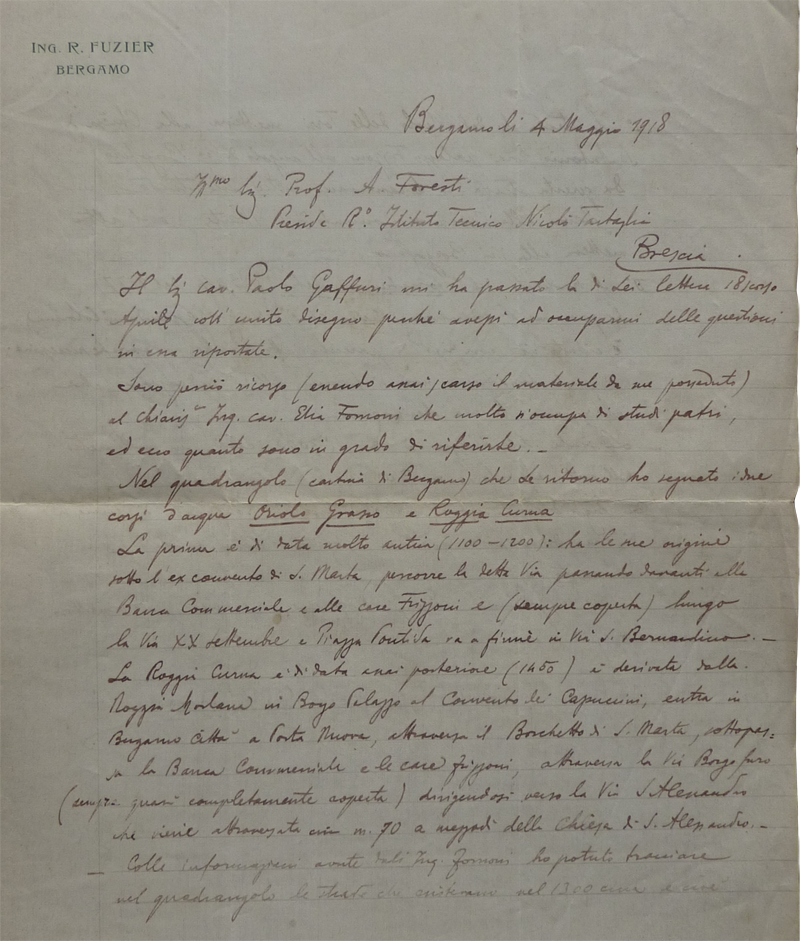 ING. R. FUZIER
BERGAMO
Bergamo li 4 Maggio 1918
Ill.mo Sig. Prof. A. Foresti
Preside Rº. Istituto Tecnico Nicolò Tartaglia
Brescia.
Il Sig cav. Paolo Gaffuri mi ha passato la di Lei lettera 18 scorso
Aprile coll' unito disegno perché avessi ad occuparmi delle questioni
in essa riportate.
Sono perciò ricorso (essendo assai scarso il materiale da me posseduto)
al Chiariss. Ing. cav. Elia Fornoni che molto s'occupa di studi patri,
ed ecco quanto sono in grado di riferirle. —
Nel quadrangolo (cartina di Bergamo) che Le ritorno ho segnato i due
corsi d'acqua Oriolo Grasso e Roggia Curna
La prima è di data molto antica (1100 – 1200): ha le sue origini
sotto l'ex convento di S. Marta, percorre la detta Via passando davanti alla
Banca Commerciale e alle case Frizzoni e (sempre coperta) lungo
la Via XX Settembre e Piazza Pontida va a finire in Via S. Bernardino. —
La Roggia Curna è di data assai posteriore (1450) è derivata dalla
Roggia Morlana in Borgo Palazzo al Convento dei Capuccini, entra in
Bergamo Città a Porta Nuova, attraversa il Borchetto di S. Marta, sottopas=
sa la Banca Commerciale e le case Frizzoni, attraversa la Via Borgofuro
(sempre quasi completamente coperta) dirigendosi verso la Via S Alessandro
che viene attraversata circa m. 70 a mezzodì della Chiesa di S. Alessandro. —
— Colle informazioni avute dall'Ing. Fornoni ho potuto tracciare
nel quadrangolo le strade che esistevano nel 1300 circa e cioè